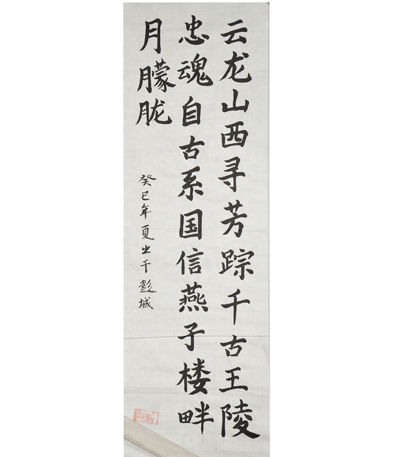 云龙山西寻芳踪千古王陵
忠魂自古系国信燕子楼畔
月朦胧
癸巳年夏于彭城